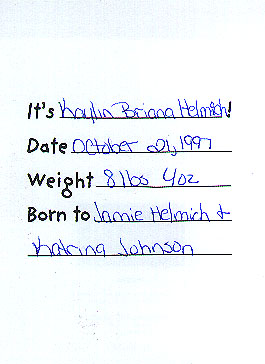 It's Kaylin Briana Helmich!
Date October 21, 1997
Weight 8 lbs 4oz
Born to Jamie Helmich +
Katrina Johnson